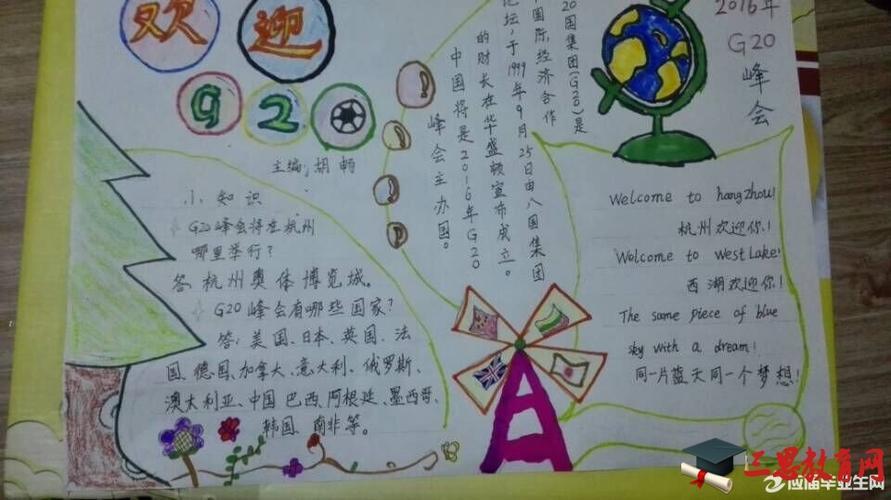 欢迎
G20
主编:胡畅
小知识
G20峰会将在杭州
哪里举行?
答:杭州奥体博览城。
G20峰会有哪些国家?
答:美国、日本、英国、法
国、德国、加拿大、意大利、俄罗斯、
澳大利亚、中国 巴西、阿根廷、墨西哥、
韩国、南非等。
20国集团(G20)是
国际经济合作
论坛,于1999年9月25日由八国集团
的财长在华盛顿宣布成立。
中国将是2016年G20
峰会主办国。
2016年
G20
峰会
Welcome to hangzhou!
杭州欢迎你!
Welcome to west Lake!
西湖欢迎你!
The same piece of blue
sky with a dream!
同一片蓝天同一个梦想!
三思教育网
应届毕业生网